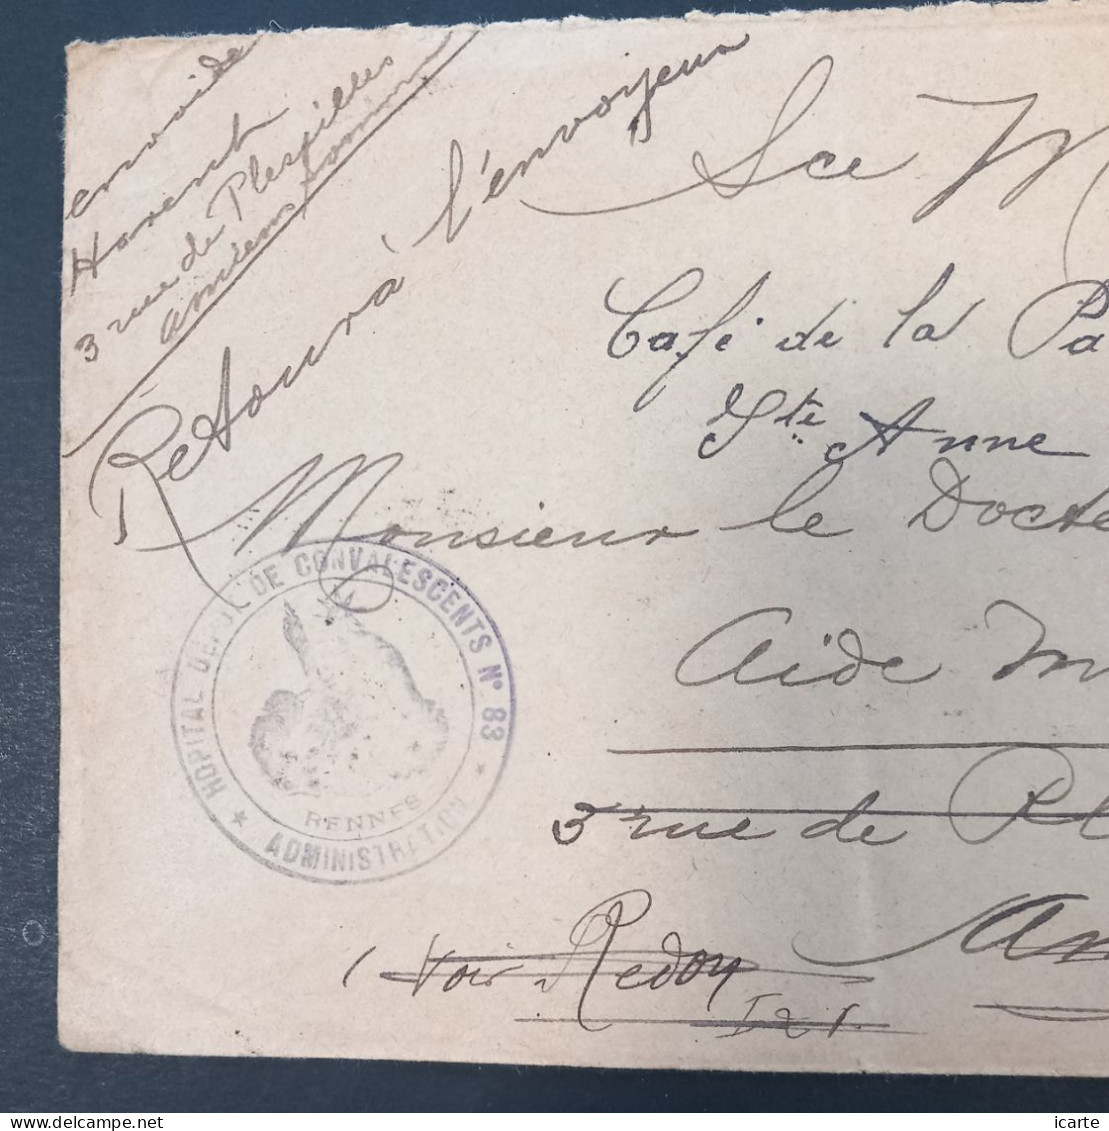 envoi de
Horent
3 rue de Plespilles
amiens Somme
Retour à l'envoyeur
Sce M
Café de la Pa
Ste Anne
Monsieur le Docte
Aide m
3 rue de Pl
Am
(Voir Redon
HOPITAL DEPOT DE CONVALESCENTS N° 83
RENNES
* ADMINISTRATION *
icarte